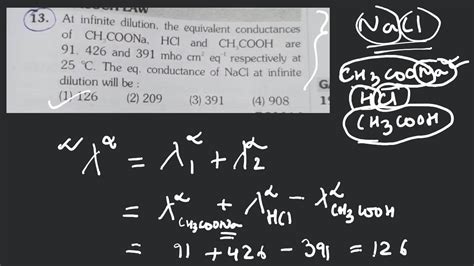 13. At infinite dilution, the equivalent conductances
of CH₃COONa, HCl and CH₃COOH are
91, 426 and 391 mho cm² eq⁻¹ respectively at
25 °C. The eq. conductance of NaCl at infinite
dilution will be :
(1) 126 (2) 209 (3) 391 (4) 908
NaCl
CH3COONa
HCl
CH3COOH
λ^α = λ₁^α + λ₂^α
= λ^α CH3COONa + λ^α HCl − λ^α CH3COOH
= 91 + 426 − 391 = 126